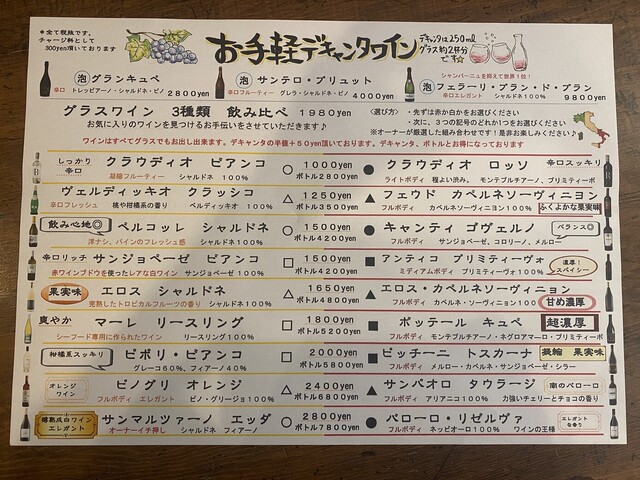 ＊全て税抜です。
チャージ料として
300yen頂いております
お手軽デキャンタワイン
デキャンタは250ml
グラス約2杯分
です☆
泡 グランキュベ
辛口 トレッビアーノ・シャルドネ・ピノ 2800yen
泡 サンテロ・ブリュット
辛口フルーティー グレラ・シャルドネ・ピノ 4000yen
シャンパーニュを抑えて世界1位！
泡 フェラーリ・ブラン・ド・ブラン
辛口エレガント シャルドネ100% 9800yen
グラスワイン 3種類 飲み比べ 1980yen
お気に入りのワインを見つけるお手伝いをさせていただきます♪
〈選び方〉 ・先ずは赤か白かをお選びください
・次に、3つの記号のどれか1つをお選びください
※オーナーが厳選した組み合わせです！是非お楽しみください♪
ワインはすべてグラスでもお出し出来ます。デキャンタの半値＋50yen頂いております。デキャンタ、ボトルとお得になっております
しっかり
辛口
クラウディオ ビアンコ
凝縮フルーティー シャルドネ 100%
○ 1000yen
ボトル2800yen
● クラウディオ ロッソ 辛口スッキリ
ライトボディ 程よい渋み。 モンテプルチアーノ、プリミティーボ
ヴェルディッキオ クラッシコ
辛口フレッシュ 桃や柑橘系の香り ベルディッキオ 100%
△ 1250yen
ボトル3500yen
▲ フェウド カベルネソーヴィニヨン
フルボディ カベルネソーヴィニヨン100% ふくよかな果実味
飲み心地◎
ペルコッレ シャルドネ
洋ナシ、パインのフレッシュ感 シャルドネ100%
○ 1500yen
ボトル4200yen
● キャンティ ゴヴェルノ バランス◎
フルボディ サンジョベーゼ、コロリーノ、メルロー
辛口リッチ サンジョベーゼ ビアンコ
赤ワインブドウを使ったレアな白ワイン サンジョベーゼ 100%
□ 1500yen
ボトル4200yen
■ アンティコ プリミティーヴォ
ミディアムボディ プリミティーヴォ100%
濃厚！
スパイシー
果実味
エロス シャルドネ
完熟したトロピカルフルーツの香り シャルドネ100%
△ 1650yen
ボトル4800yen
▲ エロス・カベルネソーヴィニヨン
フルボディ カベルネ・ソーヴィニヨン100 甘め濃厚
爽やか マーレ リースリング
シーフード専用に作られたワイン リースリング100%
□ 1800yen
ボトル5200yen
■ ボッテール キュベ 超濃厚
フルボディ モンテプルチアーノ・ネグロアマーロ・プリミティーボ
柑橘系スッキリ
ビボリ・ビアンコ
グレーコ60%、フィアーノ40%
□ 2000yen
ボトル5800yen
■ ピッチーニ トスカーナ 凝縮 果実味
フルボディ メルロー・カベルネ・サンジョベーゼ・シラー
オレンジ
ワイン
ピノグリ オレンジ
フルボディ エレガント ピノ・グリージョ100%
△ 2400yen
ボトル6800yen
▲ サンパオロ タウラージ 南のバローロ
フルボディ アリアニコ100% 力強いチェリーとチョコの香り
樽熟成白ワイン
エレガント
サンマルツァーノ エッダ
オーナーイチ押し シャルドネ フィアーノ
○ 2800yen
ボトル7800yen
● バローロ・リゼルヴァ
フルボディ ネッビオーロ100% ワインの王様
エレガント